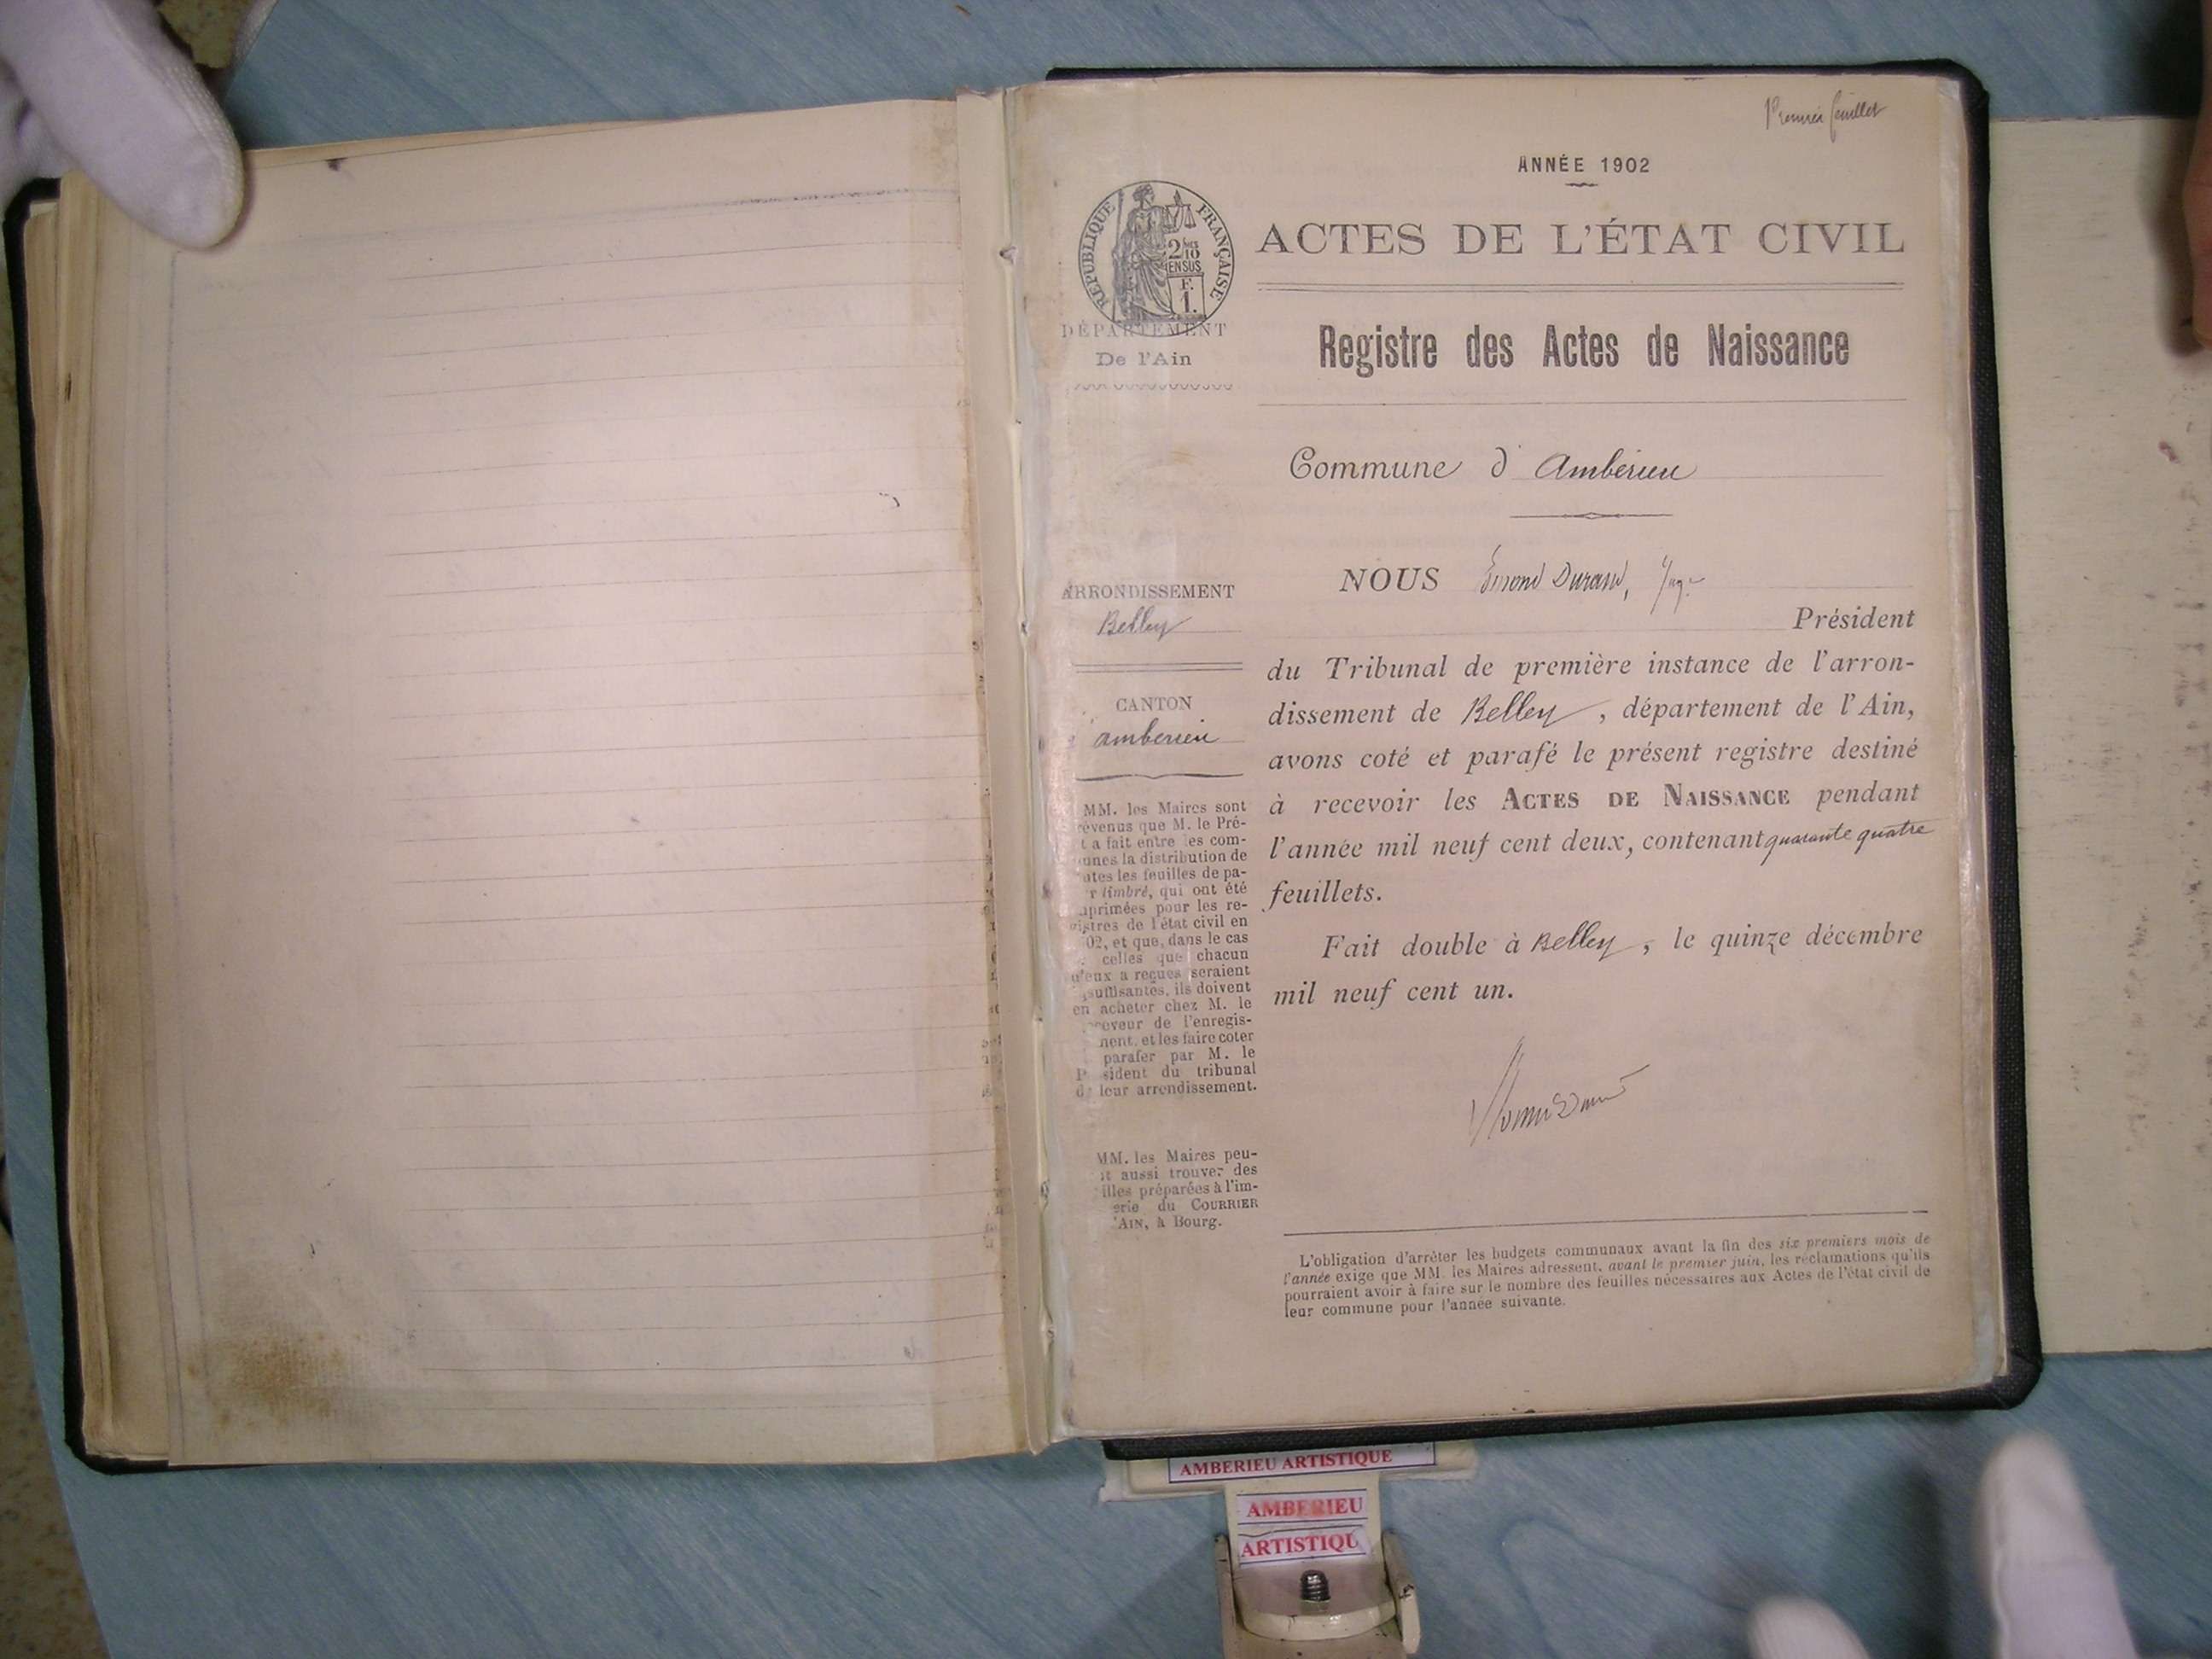 Premier feuillet
ANNÉE 1902
ACTES DE L'ÉTAT CIVIL
RÉPUBLIQUE FRANÇAISE
2/10
EN SUS
F.
1.
DÉPARTEMENT
De l'Ain
Registre des Actes de Naissance
Commune d'Ambérieu
ARRONDISSEMENT
Belley
CANTON
amberieu
MM. les Maires sont
révenus que M. le Pré-
t a fait entre les com-
unes la distribution de
utes les feuilles de pa-
r timbré, qui ont été
primées pour les re-
gistres de l'état civil en
02, et que, dans le cas
celles que chacun
d'eux a reçues seraient
suffisantes, ils doivent
en acheter chez M. le
ceveur de l'enregis-
ment, et les faire coter
parafer par M. le
P sident du tribunal
d leur arrondissement.
MM. les Maires peu-
t aussi trouver des
illes préparées à l'im-
erie du COURRIER
'AIN, à Bourg.
NOUS Durand, Juge
Président
du Tribunal de première instance de l'arron-
dissement de Belley, département de l'Ain,
avons coté et parafé le présent registre destiné
à recevoir les ACTES DE NAISSANCE pendant
l'année mil neuf cent deux, contenant quarante quatre
feuillets.
Fait double à Belley, le quinze décembre
mil neuf cent un.
L'obligation d'arrêter les budgets communaux avant la fin des six premiers mois de
l'année exige que MM. les Maires adressent, avant le premier juin, les réclamations qu'ils
pourraient avoir à faire sur le nombre des feuilles nécessaires aux Actes de l'état civil de
leur commune pour l'année suivante.
AMBERIEU ARTISTIQUE
AMBERIEU
ARTISTIQU